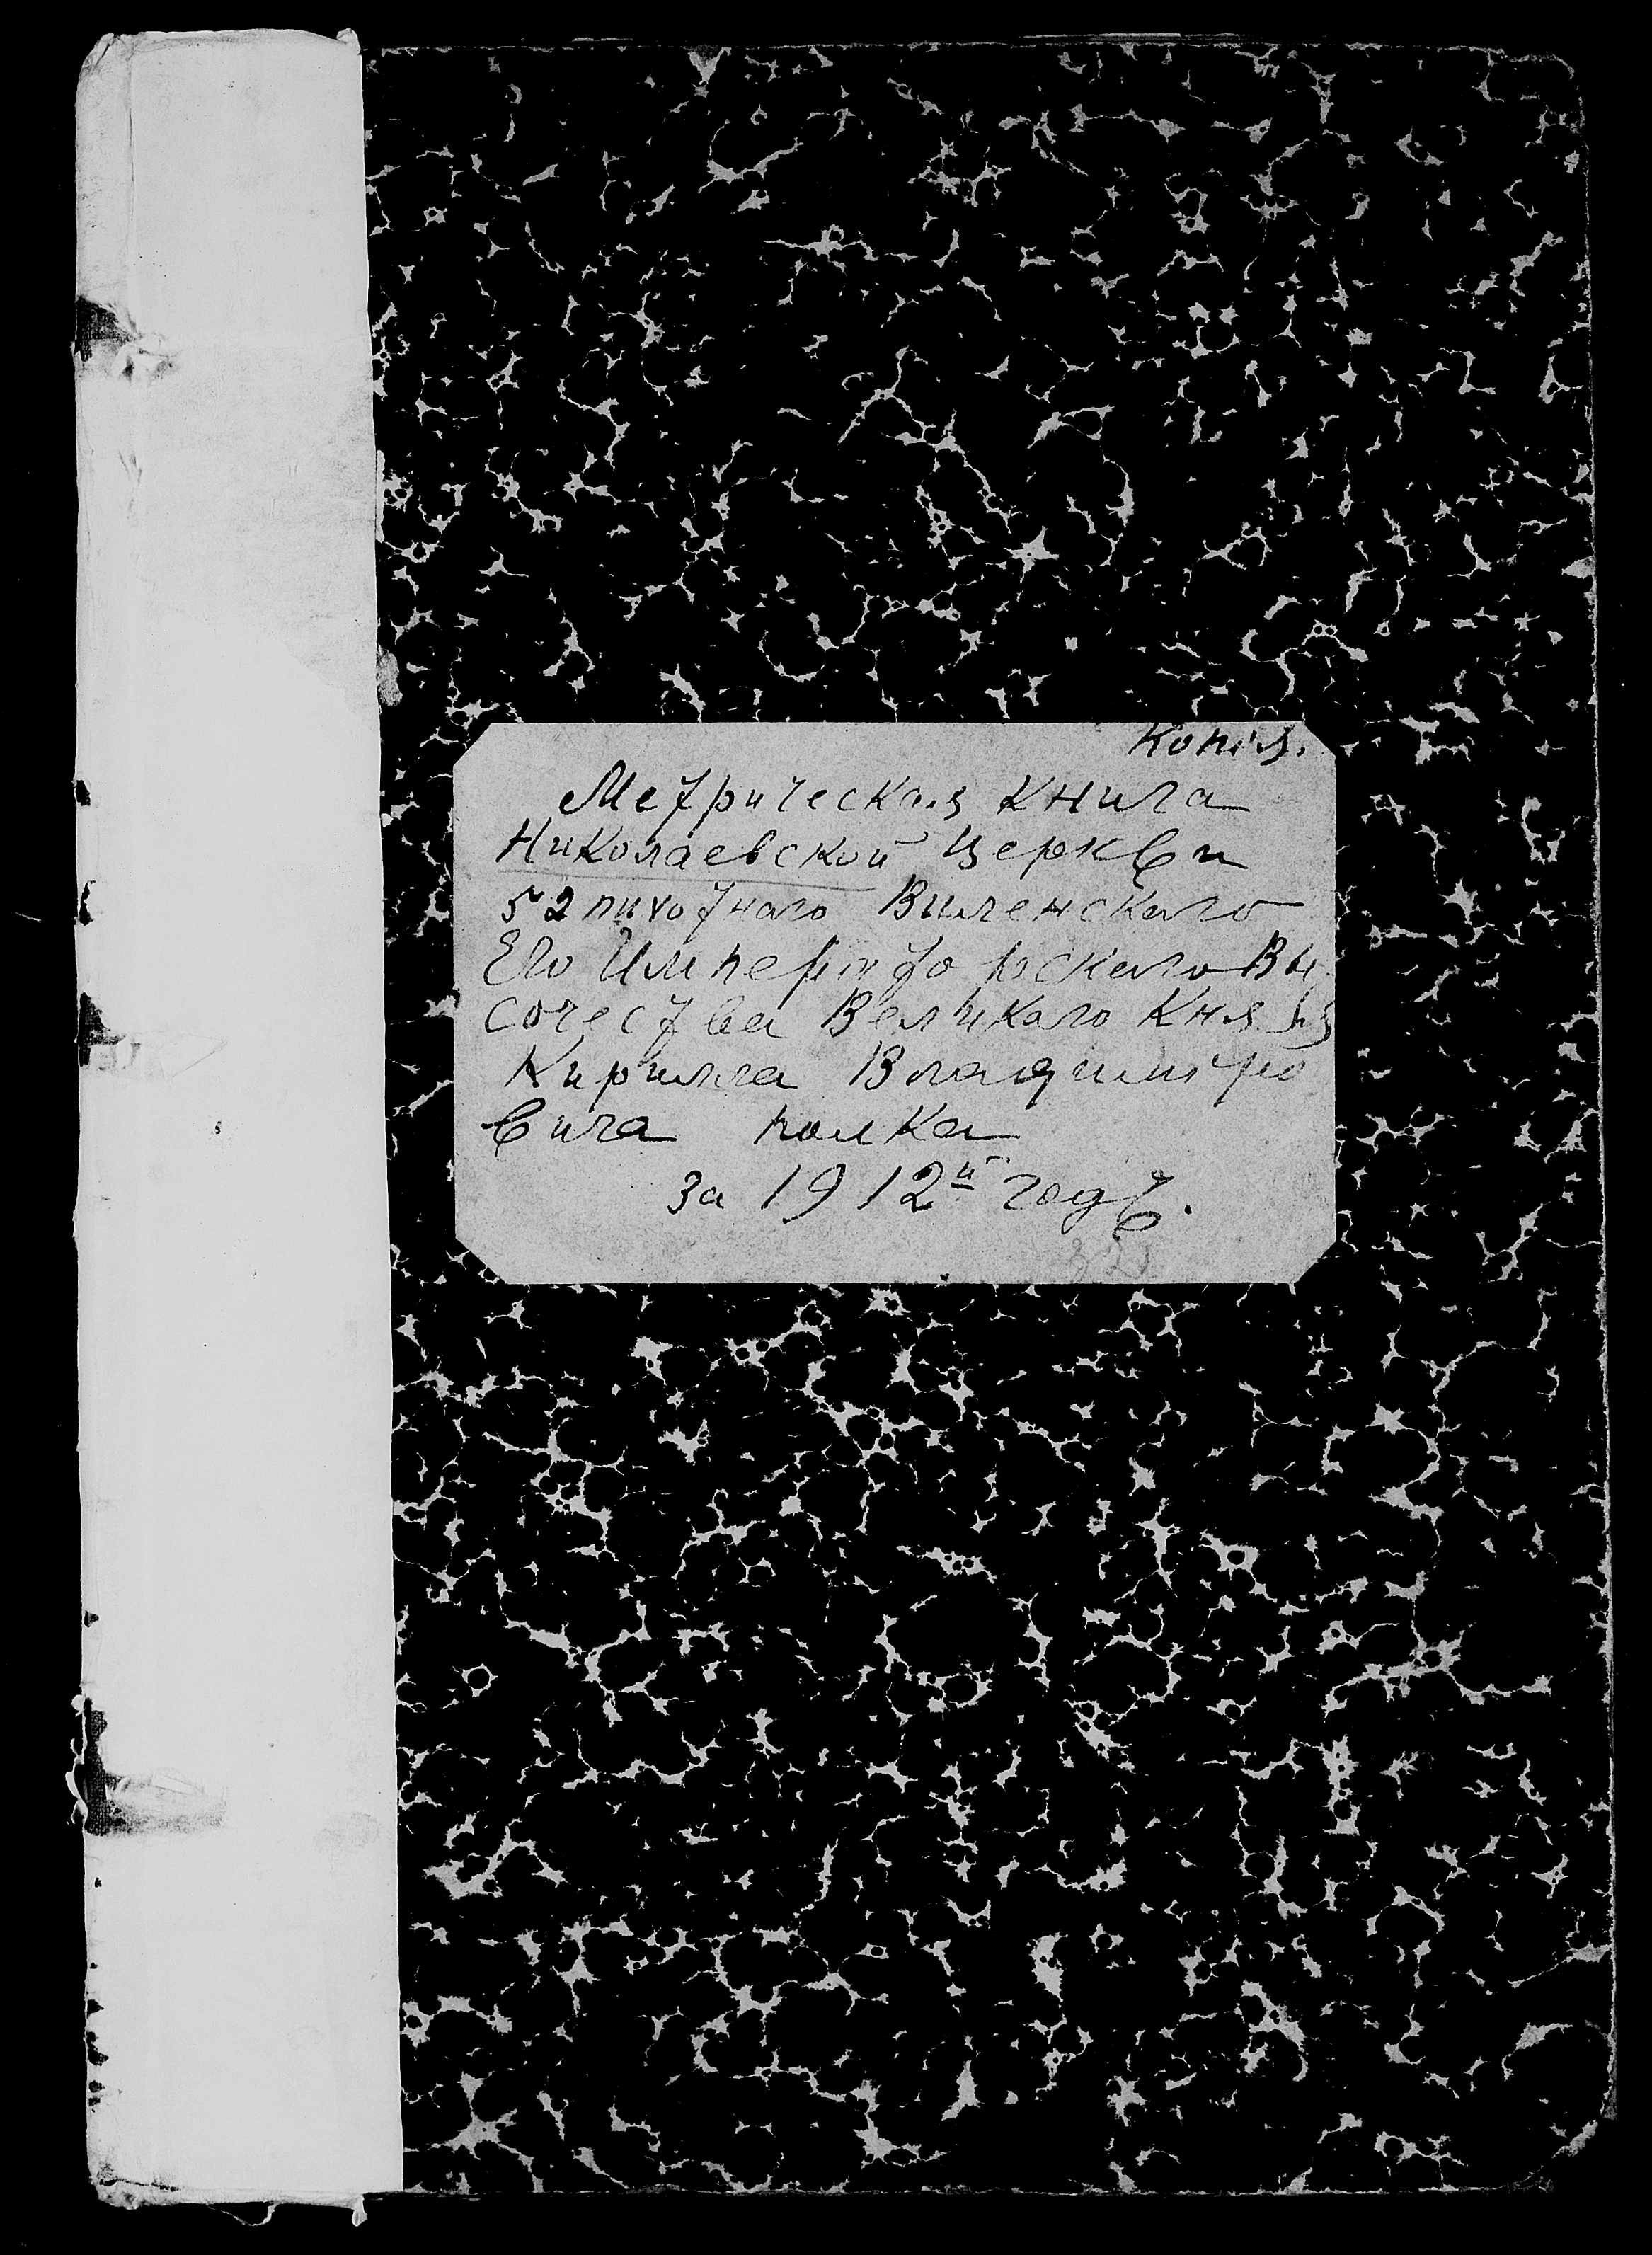 Копія.
Метрическая книга
Николаевской церкви
52 пихотнаго Виленскаго
Его Императорскаго Вы
сочества Великаго Князя
Кирилла Владиміро
вича полка
за 1912й годъ.